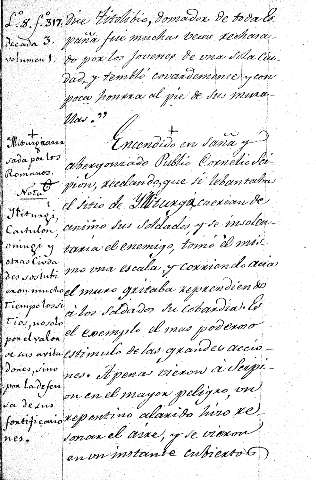 L.º 8. f.º 317.
Decada 3.
volumen 1.
dice Titolibio, domador de toda Es
paña fue muchas veces rechaza
do por los jovenes de una sola Ciu
dad, y tembló covardemente y con
poca honrra al pie de sus mura
llas."
Illiturgi arra
sada por los
Romanos.
Nota
Iliturgi,
Castulon,
y
otras Ciuda
des sostubi
eron mucho
tiempo los si
tios, no solo
por el valor
de sus avita
dores, sino
por la defen
sa de sus
fortificacio
nes.
Encendido en saña y
abergonzado Publio Cornelio Sci
pion, recelando, que si lebantaba
el sitio de Illiturgi caerian de
animo sus soldados, y se insolen
taria el enemigo, tomó el mis
mo una escala, y corriendo acia
el muro gritaba reprendiendo
á los soldados su cobardia. Es
el exemplo el mas poderoso
estimulo de las grandes accio
nes. Apenas vieron a Scipi
on en el mayor peligro, un
repentino alarido hizo re
sonar el aire, y se vieron
en un instante cubiertos